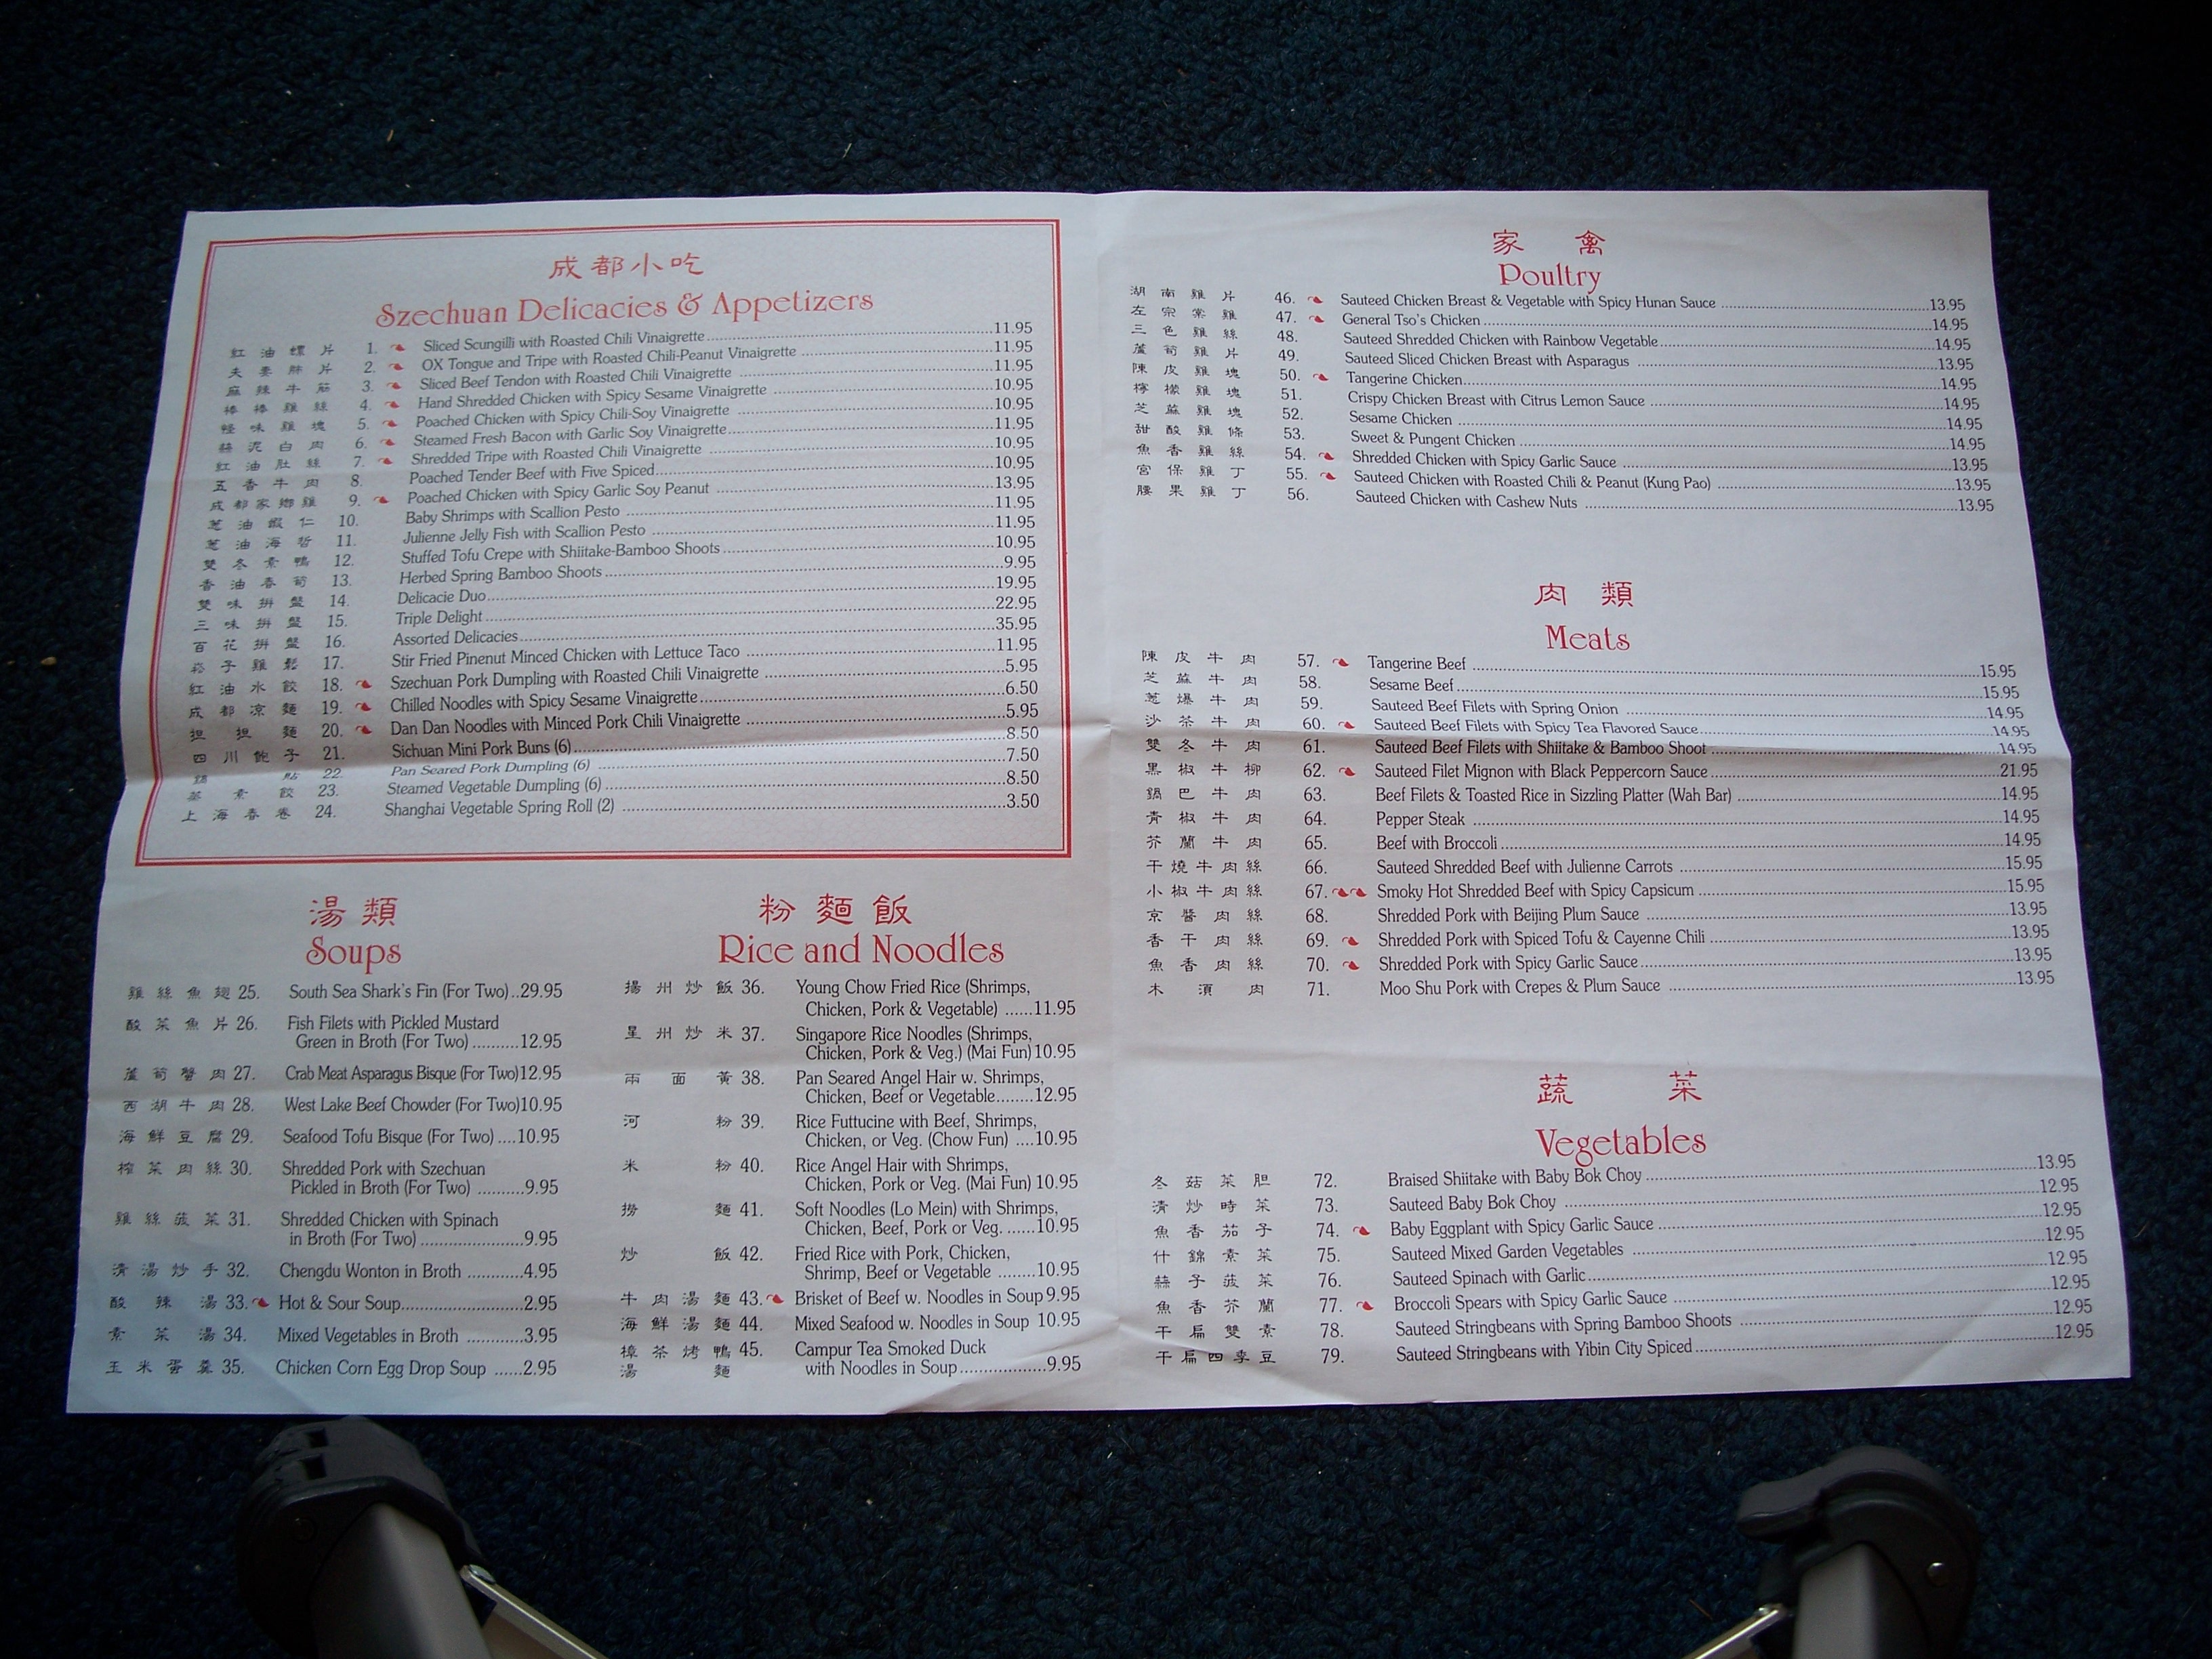 成都小吃
Szechuan Delicacies & Appetizers
紅油螺片 1. Sliced Scungilli with Roasted Chili Vinaigrette 11.95
夫妻肺片 2. OX Tongue and Tripe with Roasted Chili-Peanut Vinaigrette 11.95
麻辣牛筋 3. Sliced Beef Tendon with Roasted Chili Vinaigrette 11.95
棒棒雞絲 4. Hand Shredded Chicken with Spicy Sesame Vinaigrette 10.95
怪味雞塊 5. Poached Chicken with Spicy Chili-Soy Vinaigrette 10.95
蒜泥白肉 6. Steamed Fresh Bacon with Garlic Soy Vinaigrette 11.95
紅油肚絲 7. Shredded Tripe with Roasted Chili Vinaigrette 10.95
五香牛肉 8. Poached Tender Beef with Five Spiced 10.95
成都家鄉雞 9. Poached Chicken with Spicy Garlic Soy Peanut 13.95
蔥油蝦仁 10. Baby Shrimps with Scallion Pesto 11.95
蔥油海哲 11. Julienne Jelly Fish with Scallion Pesto 11.95
雙冬素鴨 12. Stuffed Tofu Crepe with Shiitake-Bamboo Shoots 10.95
香油春筍 13. Herbed Spring Bamboo Shoots 9.95
雙味拼盤 14. Delicacie Duo 19.95
三味拼盤 15. Triple Delight 22.95
百花拼盤 16. Assorted Delicacies 35.95
崧子雞鬆 17. Stir Fried Pinenut Minced Chicken with Lettuce Taco 11.95
紅油水餃 18. Szechuan Pork Dumpling with Roasted Chili Vinaigrette 5.95
成都凉麵 19. Chilled Noodles with Spicy Sesame Vinaigrette 6.50
担担麵 20. Dan Dan Noodles with Minced Pork Chili Vinaigrette 5.95
四川飽子 21. Sichuan Mini Pork Buns (6) 8.50
鍋貼 22. Pan Seared Pork Dumpling (6) 7.50
蒸素餃 23. Steamed Vegetable Dumpling (6) 8.50
上海春卷 24. Shanghai Vegetable Spring Roll (2) 3.50
湯類
Soups
雞絲魚翅 25. South Sea Shark's Fin (For Two) 29.95
酸菜魚片 26. Fish Filets with Pickled Mustard
Green in Broth (For Two) 12.95
蘆筍蟹肉 27. Crab Meat Asparagus Bisque (For Two) 12.95
西湖牛肉 28. West Lake Beef Chowder (For Two) 10.95
海鮮豆腐 29. Seafood Tofu Bisque (For Two) 10.95
榨菜肉絲 30. Shredded Pork with Szechuan
Pickled in Broth (For Two) 9.95
雞絲菠菜 31. Shredded Chicken with Spinach
in Broth (For Two) 9.95
清湯炒手 32. Chengdu Wonton in Broth 4.95
酸辣湯 33. Hot & Sour Soup 2.95
素菜湯 34. Mixed Vegetables in Broth 3.95
玉米蛋羹 35. Chicken Corn Egg Drop Soup 2.95
粉麵飯
Rice and Noodles
揚州炒飯 36. Young Chow Fried Rice (Shrimps,
Chicken, Pork & Vegetable) 11.95
星州炒米 37. Singapore Rice Noodles (Shrimps,
Chicken, Pork & Veg.) (Mai Fun) 10.95
兩面黃 38. Pan Seared Angel Hair w. Shrimps,
Chicken, Beef or Vegetable 12.95
河粉 39. Rice Futtucine with Beef, Shrimps,
Chicken, or Veg. (Chow Fun) 10.95
米粉 40. Rice Angel Hair with Shrimps,
Chicken, Pork or Veg. (Mai Fun) 10.95
撈麵 41. Soft Noodles (Lo Mein) with Shrimps,
Chicken, Beef, Pork or Veg. 10.95
炒飯 42. Fried Rice with Pork, Chicken,
Shrimp, Beef or Vegetable 10.95
牛肉湯麵 43. Brisket of Beef w. Noodles in Soup 9.95
海鮮湯麵 44. Mixed Seafood w. Noodles in Soup 10.95
樟茶烤鴨 45. Campur Tea Smoked Duck
湯麵 with Noodles in Soup 9.95
家禽
Poultry
湖南雞片 46. Sauteed Chicken Breast & Vegetable with Spicy Hunan Sauce 13.95
左宗棠雞 47. General Tso's Chicken 14.95
三色雞絲 48. Sauteed Shredded Chicken with Rainbow Vegetable 14.95
蘆筍雞片 49. Sauteed Sliced Chicken Breast with Asparagus 13.95
陳皮雞塊 50. Tangerine Chicken 14.95
檸檬雞塊 51. Crispy Chicken Breast with Citrus Lemon Sauce 14.95
芝蔴雞塊 52. Sesame Chicken 14.95
甜酸雞條 53. Sweet & Pungent Chicken 14.95
魚香雞絲 54. Shredded Chicken with Spicy Garlic Sauce 13.95
宮保雞丁 55. Sauteed Chicken with Roasted Chili & Peanut (Kung Pao) 13.95
腰果雞丁 56. Sauteed Chicken with Cashew Nuts 13.95
肉類
Meats
陳皮牛肉 57. Tangerine Beef 15.95
芝蔴牛肉 58. Sesame Beef 15.95
蔥爆牛肉 59. Sauteed Beef Filets with Spring Onion 14.95
沙茶牛肉 60. Sauteed Beef Filets with Spicy Tea Flavored Sauce 14.95
雙冬牛肉 61. Sauteed Beef Filets with Shiitake & Bamboo Shoot 14.95
黑椒牛柳 62. Sauteed Filet Mignon with Black Peppercorn Sauce 21.95
鍋巴牛肉 63. Beef Filets & Toasted Rice in Sizzling Platter (Wah Bar) 14.95
青椒牛肉 64. Pepper Steak 14.95
芥蘭牛肉 65. Beef with Broccoli 14.95
干燒牛肉絲 66. Sauteed Shredded Beef with Julienne Carrots 15.95
小椒牛肉絲 67. Smoky Hot Shredded Beef with Spicy Capsicum 15.95
京醬肉絲 68. Shredded Pork with Beijing Plum Sauce 13.95
香干肉絲 69. Shredded Pork with Spiced Tofu & Cayenne Chili 13.95
魚香肉絲 70. Shredded Pork with Spicy Garlic Sauce 13.95
木須肉 71. Moo Shu Pork with Crepes & Plum Sauce 13.95
蔬菜
Vegetables
冬菇菜胆 72. Braised Shiitake with Baby Bok Choy 13.95
清炒時菜 73. Sauteed Baby Bok Choy 12.95
魚香茄子 74. Baby Eggplant with Spicy Garlic Sauce 12.95
什錦素菜 75. Sauteed Mixed Garden Vegetables 12.95
蒜子菠菜 76. Sauteed Spinach with Garlic 12.95
魚香芥蘭 77. Broccoli Spears with Spicy Garlic Sauce 12.95
干扁雙素 78. Sauteed Stringbeans with Spring Bamboo Shoots 12.95
干扁四季豆 79. Sauteed Stringbeans with Yibin City Spiced 12.95